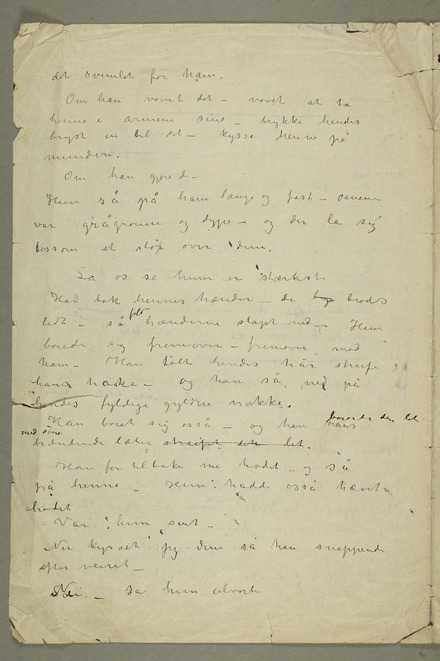 det svimlet for ham.
Om han vovet det – vovet at ta
henne i armene sine – trykke hendes
bryst in til sit – kysse henne på
munden.
Om han gjorde –
Hun så på ham længe og fast – øinene
var grågrønne og dype – og der la sig
lessom et slør over dem.
La os se hvem er stærkest
Han tok hennes hænder – de
lidt – så falt hænderne slapt ned – Hun
boiede sig fremover – fremover mod
ham – Han følte hendes hår streife
hans – og han så ned på
hendes fyldige gyldne nakke.
Han boiet sig også – og han
med sine
brændende læber streifet det let.
Han for tilbake med hodet – og så
på henne – Hun hadde også hævet
hodet
Var hun sint –
Nu kysset jeg dem sa han snappende
efter veiret –
Nei – sa hun alvorlig